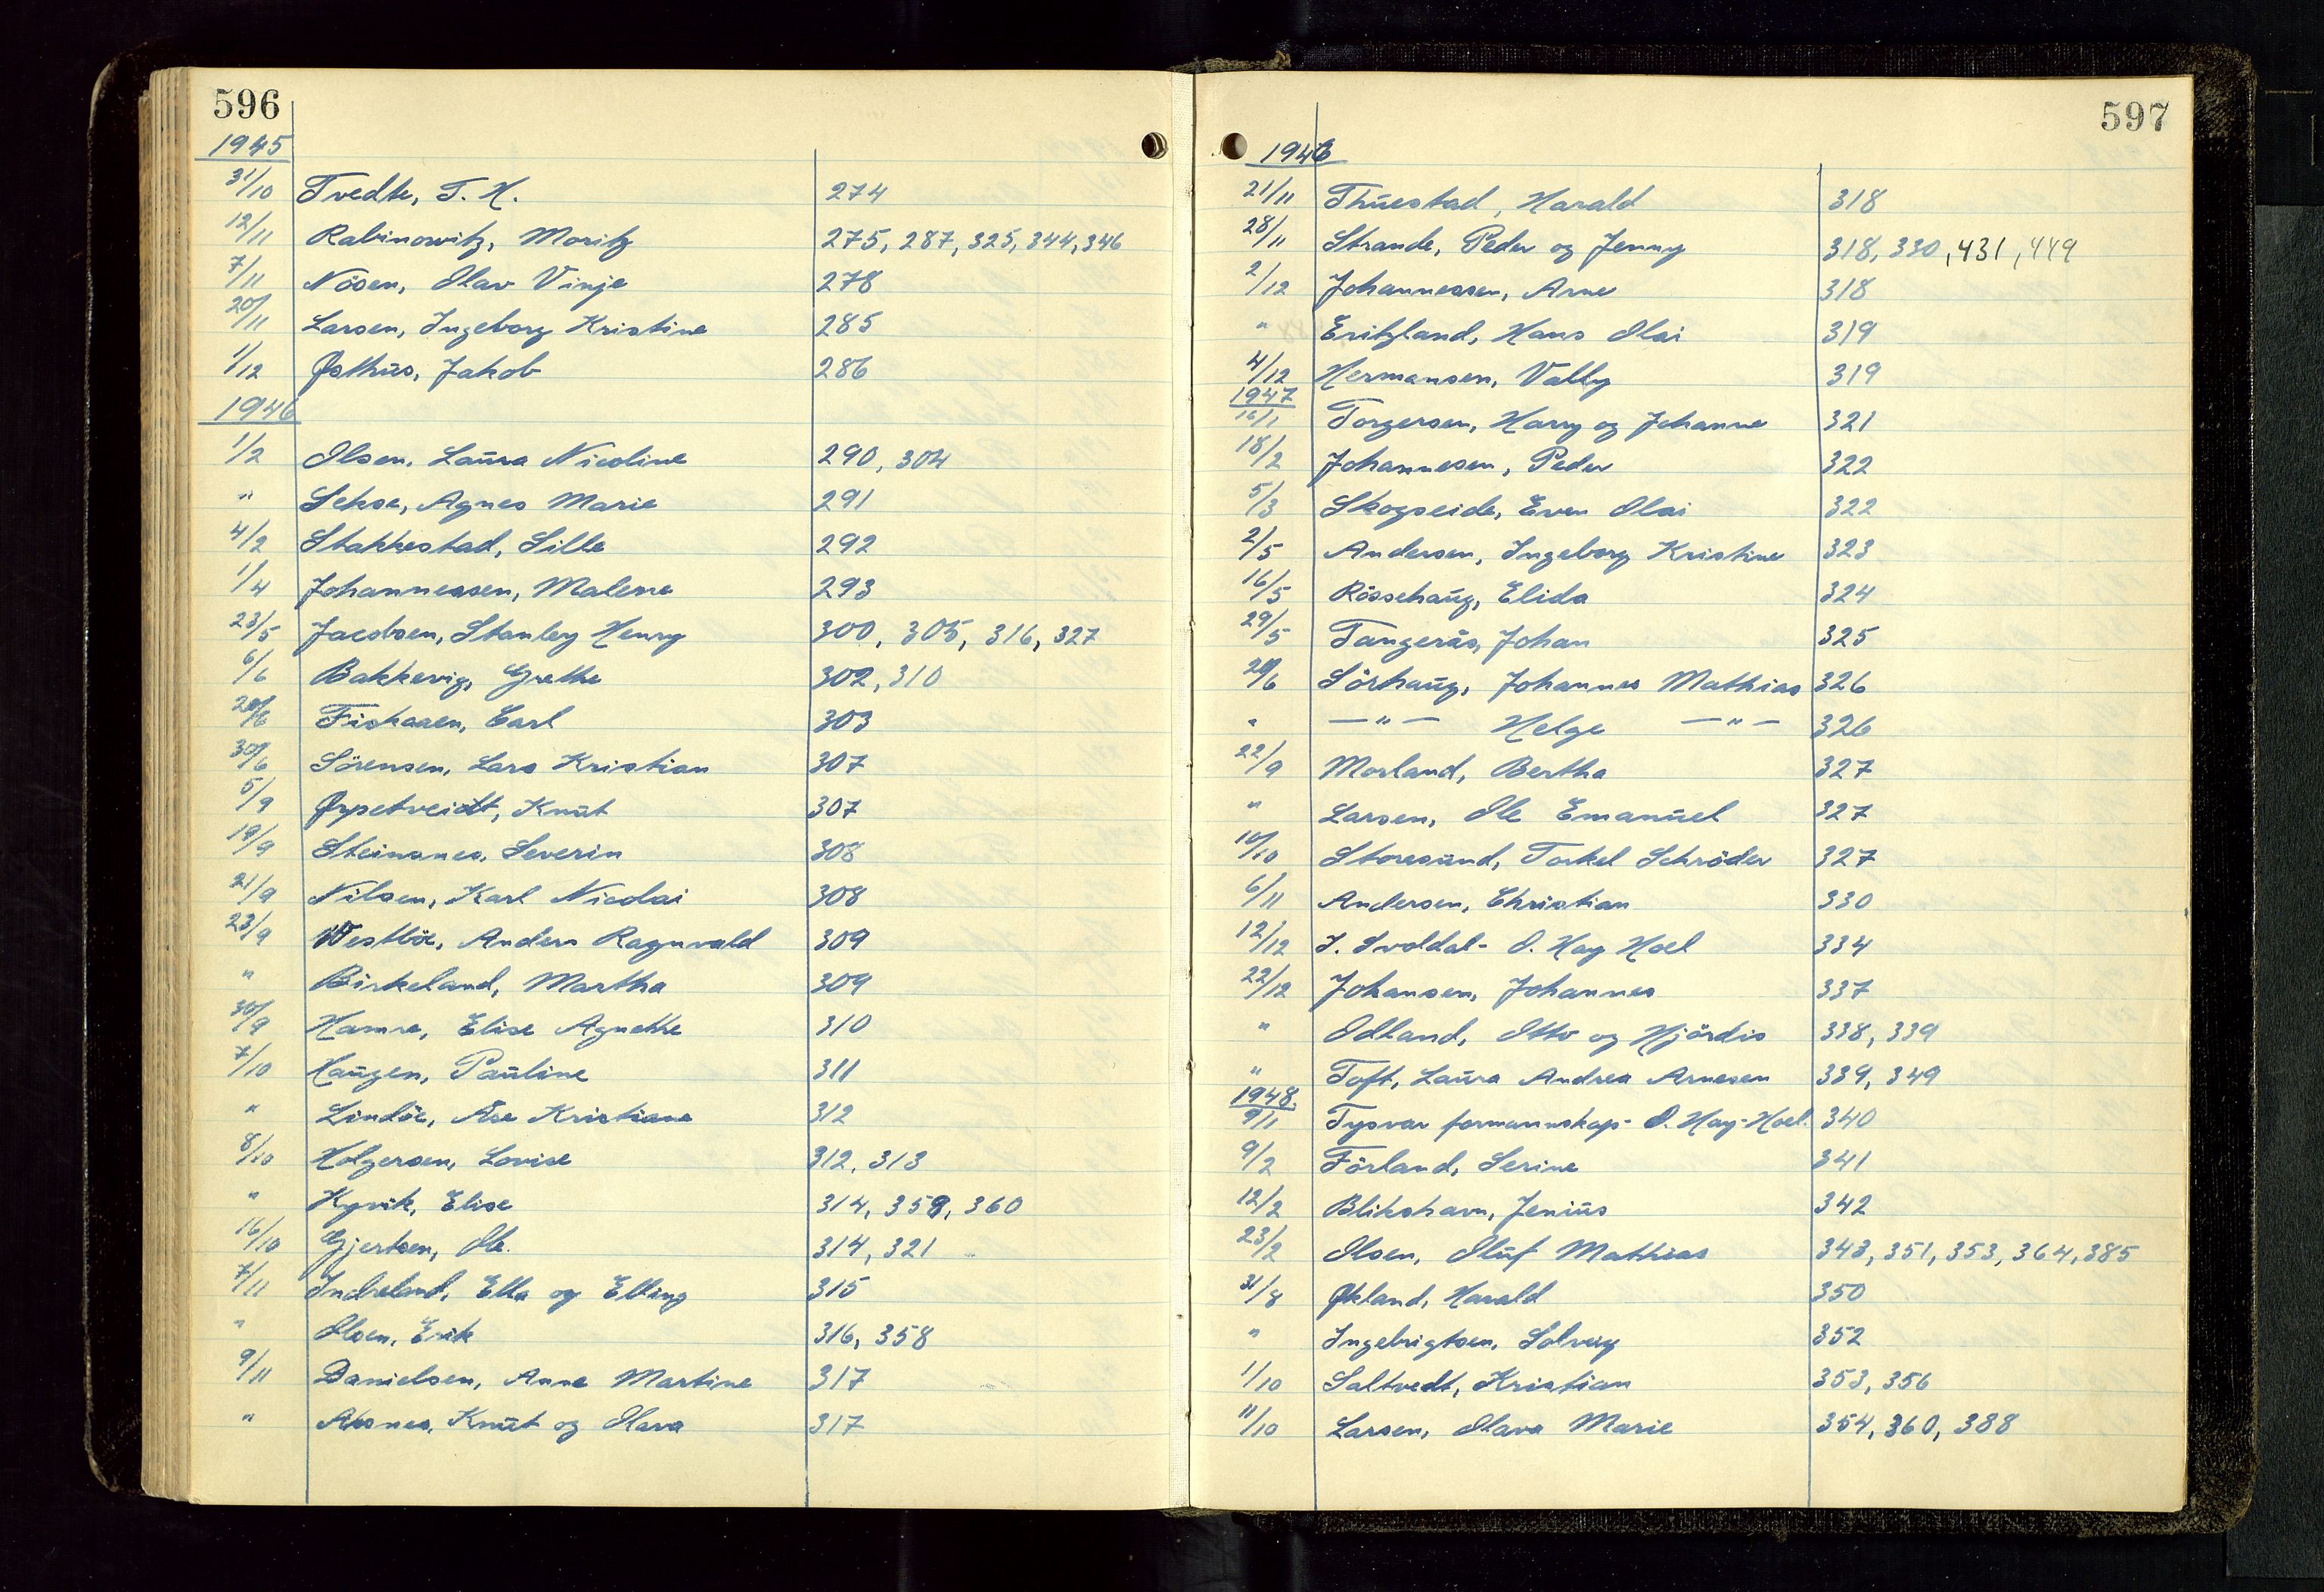 596
1945
31/10 Tvedte, T. H. 274
12/11 Rabinowitz, Moritz 275, 287, 325, 344, 346
7/11 Nösen, Olav Vinje 278
20/11 Larsen, Ingeborg Kristine 285
1/12 Østhus, Jakob 286
1946
1/2 Olsen, Laura Nicoline 290, 304
" Sekse, Agnes Marie 291
4/2 Stakkestad, Sille 292
1/4 Johannessen, Malene 293
23/5 Jacobsen, Stanley Henry 300, 305, 316, 327
6/6 Bakkevig, Grethe 302, 310
20/6 Fiskaaen, Carl 303
30/6 Sörensen, Lars Kristian 307
5/9 Ørpetveidt, Knut 307
19/9 Steinsnes, Severin 308
21/9 Nilsen, Karl Nicolai 308
23/9 Westböe, Anders Ragnvald 309
" Birkeland, Martha 309
30/9 Hamre, Elise Agnethe 310
7/10 Haugen, Pauline 311
" Lindöe, Åse Kristiane 312
8/10 Holgersen, Lovise 312, 313
" Kyvik, Elise 314, 359, 360
16/10 Gjertsen, Ole. 314, 321
7/11 Indreland, Ella og Elling 315
" Olsen, Erik 316, 358
9/11 Danielsen, Anne Martine 317
" Aksnes, Knut og Olava 317
597
1946
21/11 Thuestad, Harald 318
28/11 Strande, Peder og Jenny 318, 330, 431, 449
2/12 Johannessen, Arne 318
" Eritzland, Hans Olai 319
4/12 Hermansen, Vally 319
1947
16/1 Torgersen, Harry og Johanne 321
18/2 Johannesen, Peder 322
5/3 Skogseide, Even Olai 322
2/5 Andersen, Ingeborg Kristine 323
16/5 Rössehaug, Elida 324
29/5 Tangerås, Johan 325
20/6 Sörhaug, Johannes Mathias 326
" —"— Helge —"— 326
22/9 Morland, Bertha 327
" Larsen, Ole Emanuel 327
10/10 Storesund, Torkel Schröder 327
6/11 Andersen, Christian 330
12/12 I. Svoldal - O. Hay Hoel 334
22/12 Johansen, Johannes 337
" Odland, Otto og Hjördis 338, 339
" Toft, Laura Andrea Arnesen 339, 349
1948.
9/1 Tysvær formannskap - O. Hay-Hoel. 340
9/2 Förland, Serine 341
12/2 Blikshavn, Jenius 342
23/2 Olsen, Oluf Mathias 343, 351, 353, 364, 385
31/8 Økland, Harald 350
" Ingebrigtsen, Solveig 352
1/10 Saltvedt, Kristian 353, 356
11/10 Larsen, Olava Marie 354, 360, 388